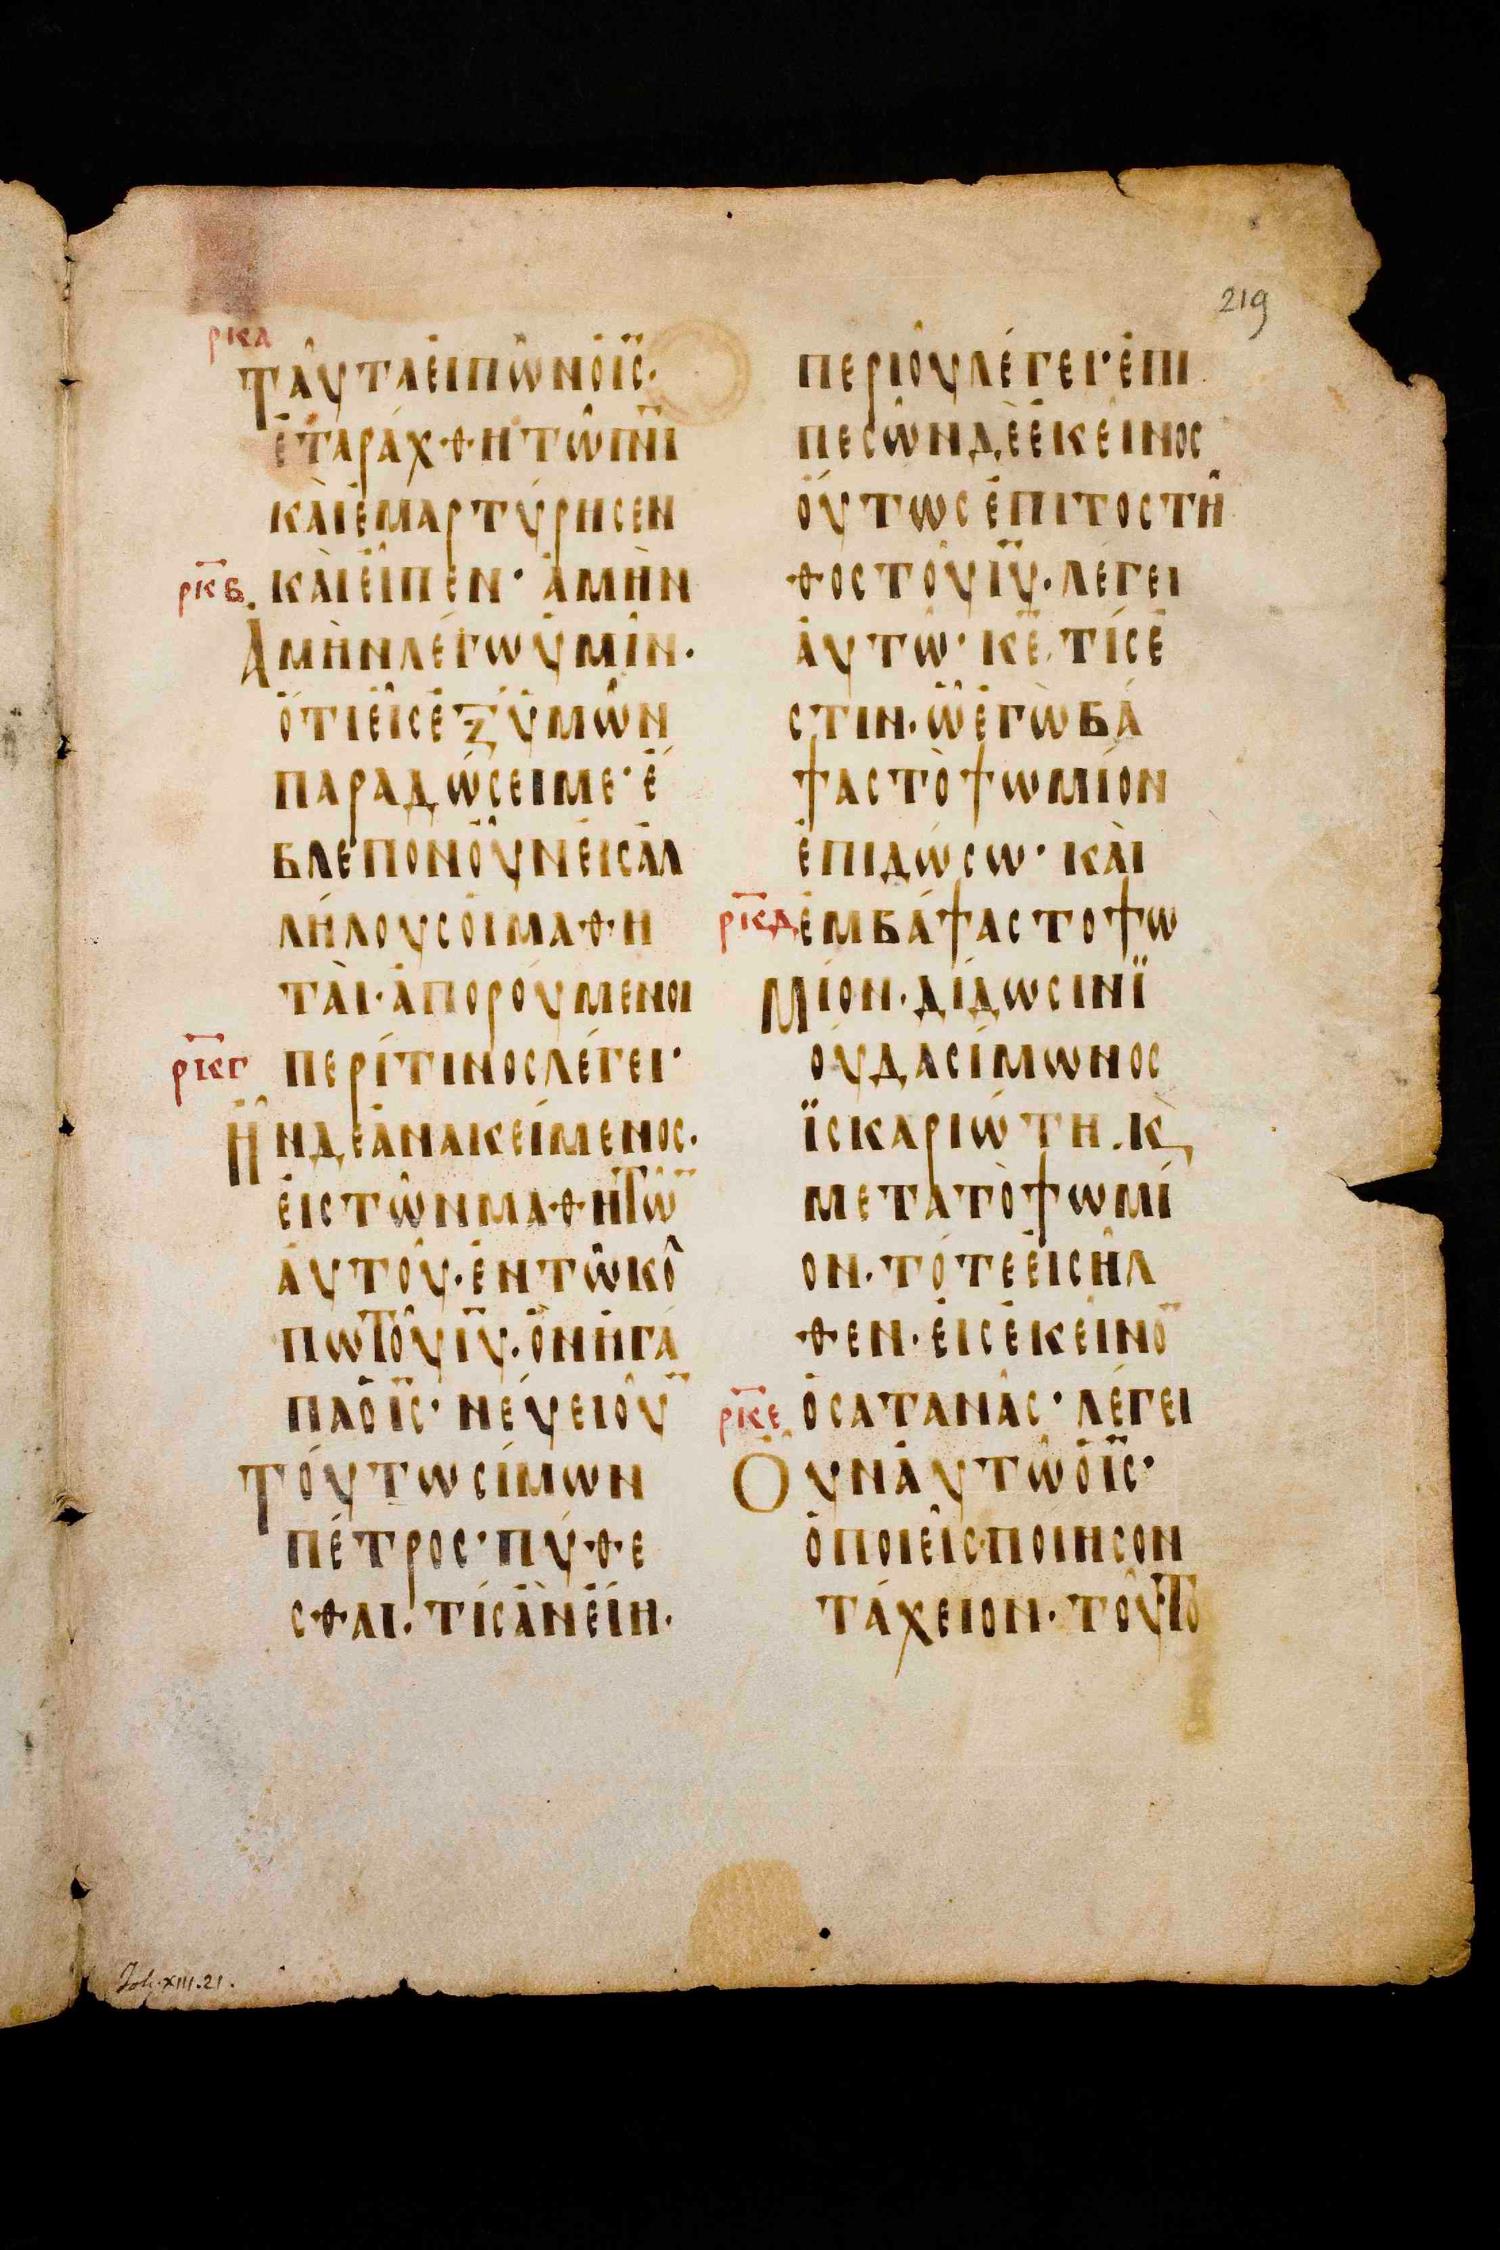 219
ρκα
ΤΑΥΤΑΕΙΠΩΝΟΙ̅Σ̅·
ΕΤΑΡΑΧΘΗΤΩΠ̅Ν̅Ι̅
ΚΑΙΕΜΑΡΤΥΡΗΣΕΝ
ρκβ ΚΑΙΕΙΠΕΝ· ΑΜΗΝ
ΑΜΗΝΛΕΓΩΥΜΙΝ·
ΟΤΙΕΙΣΕΞΥΜΩΝ
ΠΑΡΑΔΩΣΕΙΜΕ· Ε
ΒΛΕΠΟΝΟΥΝΕΙΣΑΛ
ΛΗΛΟΥΣΟΙΜΑΘΗ
ΤΑΙ· ΑΠΟΡΟΥΜΕΝΟΙ
ρκγ ΠΕΡΙΤΙΝΟΣΛΕΓΕΙ·
ΗΝΔΕΑΝΑΚΕΙΜΕΝΟΣ·
ΕΙΣΤΩΝΜΑΘΗΤΩ̅
ΑΥΤΟΥ· ΕΝΤΩΚΟΛ
ΠΩΤΟΥΙ̅Υ̅· ΟΝΗΓΑ
ΠΑΟΙ̅Σ̅· ΝΕΥΕΙΟΥ̅
ΤΟΥΤΩΣΙΜΩΝ
ΠΕΤΡΟΣ· ΠΥΘΕ
ΣΘΑΙ· ΤΙΣΑΝΕΙΗ·
ΠΕΡΙΟΥΛΕΓΕΙ· ΕΠΙ
ΠΕΣΩΝΔΕΕΚΕΙΝΟΣ
ΟΥΤΩΣΕΠΙΤΟΣΤΗ
ΘΟΣΤΟΥΙ̅Υ̅· ΛΕΓΕΙ
ΑΥΤΩ· Κ̅Ε̅· ΤΙΣΕ
ΣΤΙΝ· ΩΕΓΩΒΑ
ΨΑΣΤΟΨΩΜΙΟΝ
ΕΠΙΔΩΣΩ· ΚΑΙ
ρκδ ΕΜΒΑΨΑΣΤΟΨΩ
ΜΙΟΝ· ΔΙΔΩΣΙΝΪ
ΟΥΔΑΣΙΜΩΝΟΣ
ΪΣΚΑΡΙΩΤΗ· Κϗ
ΜΕΤΑΤΟΨΩΜΙ
ΟΝ· ΤΟΤΕΕΙΣΗΛ
ΘΕΝ· ΕΙΣΕΚΕΙΝΟ̅
ρκε ΟΣΑΤΑΝΑΣ· ΛΕΓΕΙ
ΟΥΝΑΥΤΩΟΙ̅Σ̅·
ΟΠΟΙΕΙΣ· ΠΟΙΗΣΟΝ
ΤΑΧΕΙΟΝ· ΤΟΥΤΟ
Joh. XIII. 21.